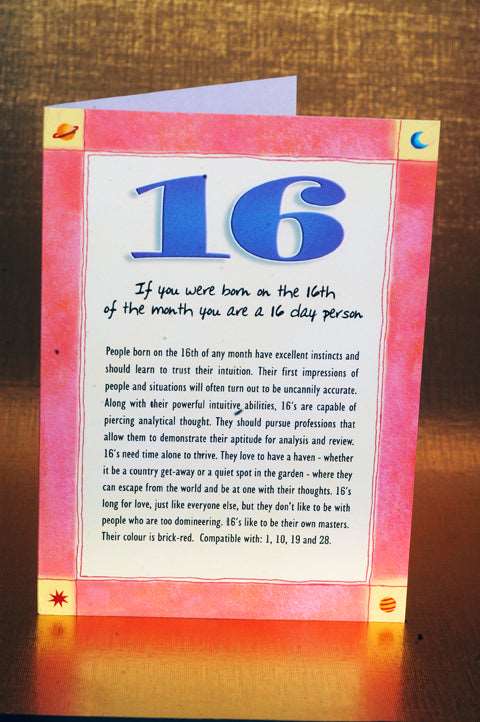 16
If you were born on the 16th
of the month you are a 16 day person
People born on the 16th of any month have excellent instincts and
should learn to trust their intuition. Their first impressions of
people and situations will often turn out to be uncannily accurate.
Along with their powerful intuitive abilities, 16's are capable of
piercing analytical thought. They should pursue professions that
allow them to demonstrate their aptitude for analysis and review.
16's need time alone to thrive. They love to have a haven - whether
it be a country get-away or a quiet spot in the garden - where they
can escape from the world and be at one with their thoughts. 16's
long for love, just like everyone else, but they don't like to be with
people who are too domineering. 16's like to be their own masters.
Their colour is brick-red. Compatible with: 1, 10, 19 and 28.